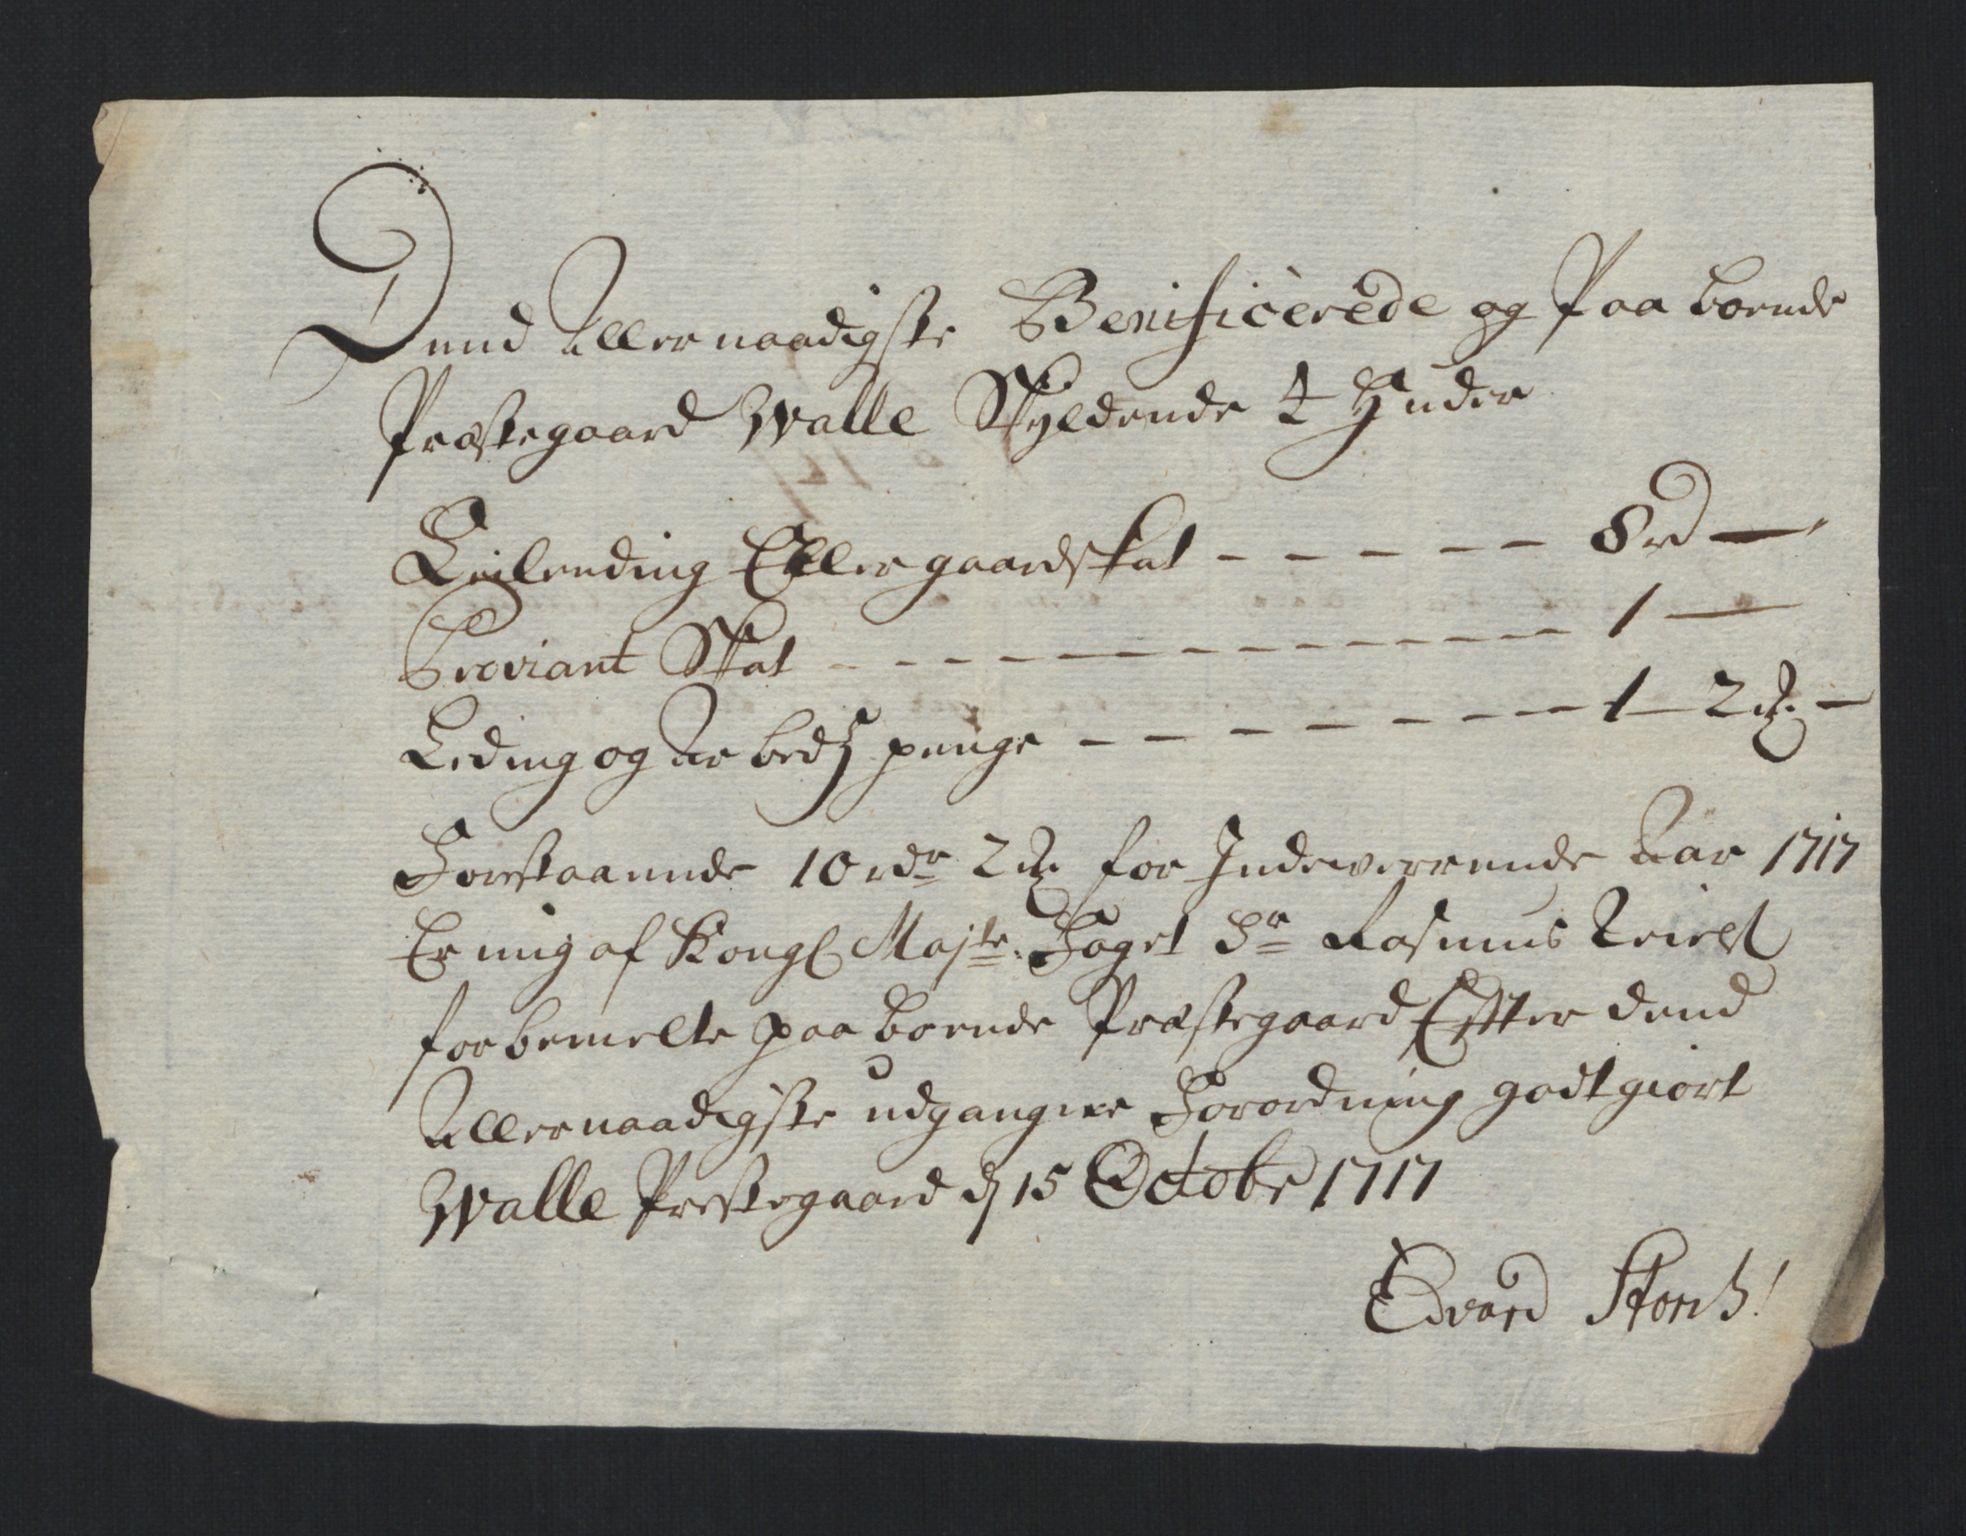 Dend Allernaadigste Benificerede og Paa boende
Præstegaard Walle Skyldende 4 Huder
Leilending Eller gaardskat - - - - - - 8 rd —
Proviant Skat - - - - - - - - - - - - 1 —
Leding og Arbedz penge - - - - - - - 1 - 2 ß —
Forestaaende 10 rdr 2 ß for Indeverrende Aar 1717
Er mig af Kongl Majts Foget Sr Rasmus
for bemelte paa boende Præstegaard Effter dend
Allernaadigste udgangne Forordning godtgiort
Walle Prestegaard d 15 Octobr 1717
Edvard Storch